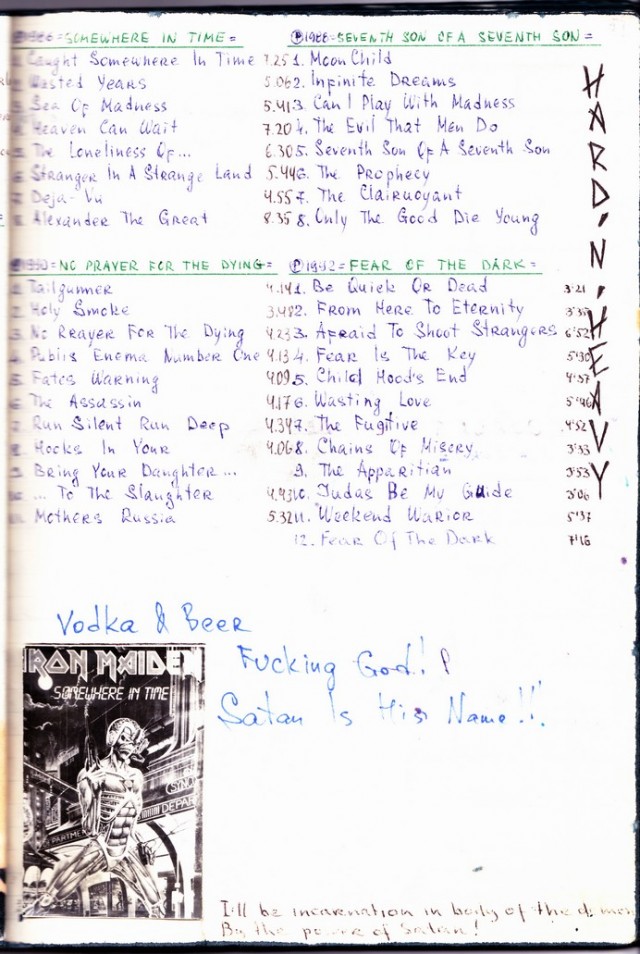 1986=SOMEWHERE IN TIME=
1. Caught Somewhere In Time 7.25
2. Wasted Years 5.06
3. Sea Of Madness 5.41
4. Heaven Can Wait 7.20
5. The Loneliness Of... 6.30
6. Stranger In A Strange Land 5.44
7. Deja-Vu 4.55
8. Alexander The Great 8.35
Ⓟ1988=SEVENTH SON OF A SEVENTH SON=
1. Moon Child
2. Infinite Dreams
3. Can I Play With Madness
4. The Evil That Men Do
5. Seventh Son Of A Seventh Son
6. The Prophecy
7. The Clairvoyant
8. Only The Good Die Young
Ⓟ1990=NO PRAYER FOR THE DYING=
1. Tailgunner 4.14
2. Holy Smoke 3.48
3. No Rrayer For The Dying 4.23
4. Publis Enema Number One 4.13
5. Fates Warning 4.09
6. The Assassin 4.17
7. Run Silent Run Deep 4.34
8. Hooks In Your 4.06
9. Bring Your Daughter...
10. ... To The Slaughter 4.43
11. Mothers Russia 5.32
Ⓟ1992=FEAR OF THE DARK=
1. Be Quick Or Dead 3'21
2. From Here To Eternity 3'35
3. Afraid To Shoot Strangers 6'52
4. Fear Is The Key 5'30
5. Child Hood's End 4'37
6. Wasting Love 5'46
7. The Fugitive 4'52
8. Chains Of Misery 3'33
9. The Apparitian 3'53
10. Judas Be My Guide 3'06
11. Weekend Warior 5'37
12. Fear Of The Dark 7'16
HARD'N'HEAVY
Vodka & Beer
Fucking God!!
Satan Is His Name!!!
IRON MAIDEN
SOMEWHERE IN TIME
I'll be incarnation in body of the demon
By the power of Satan!